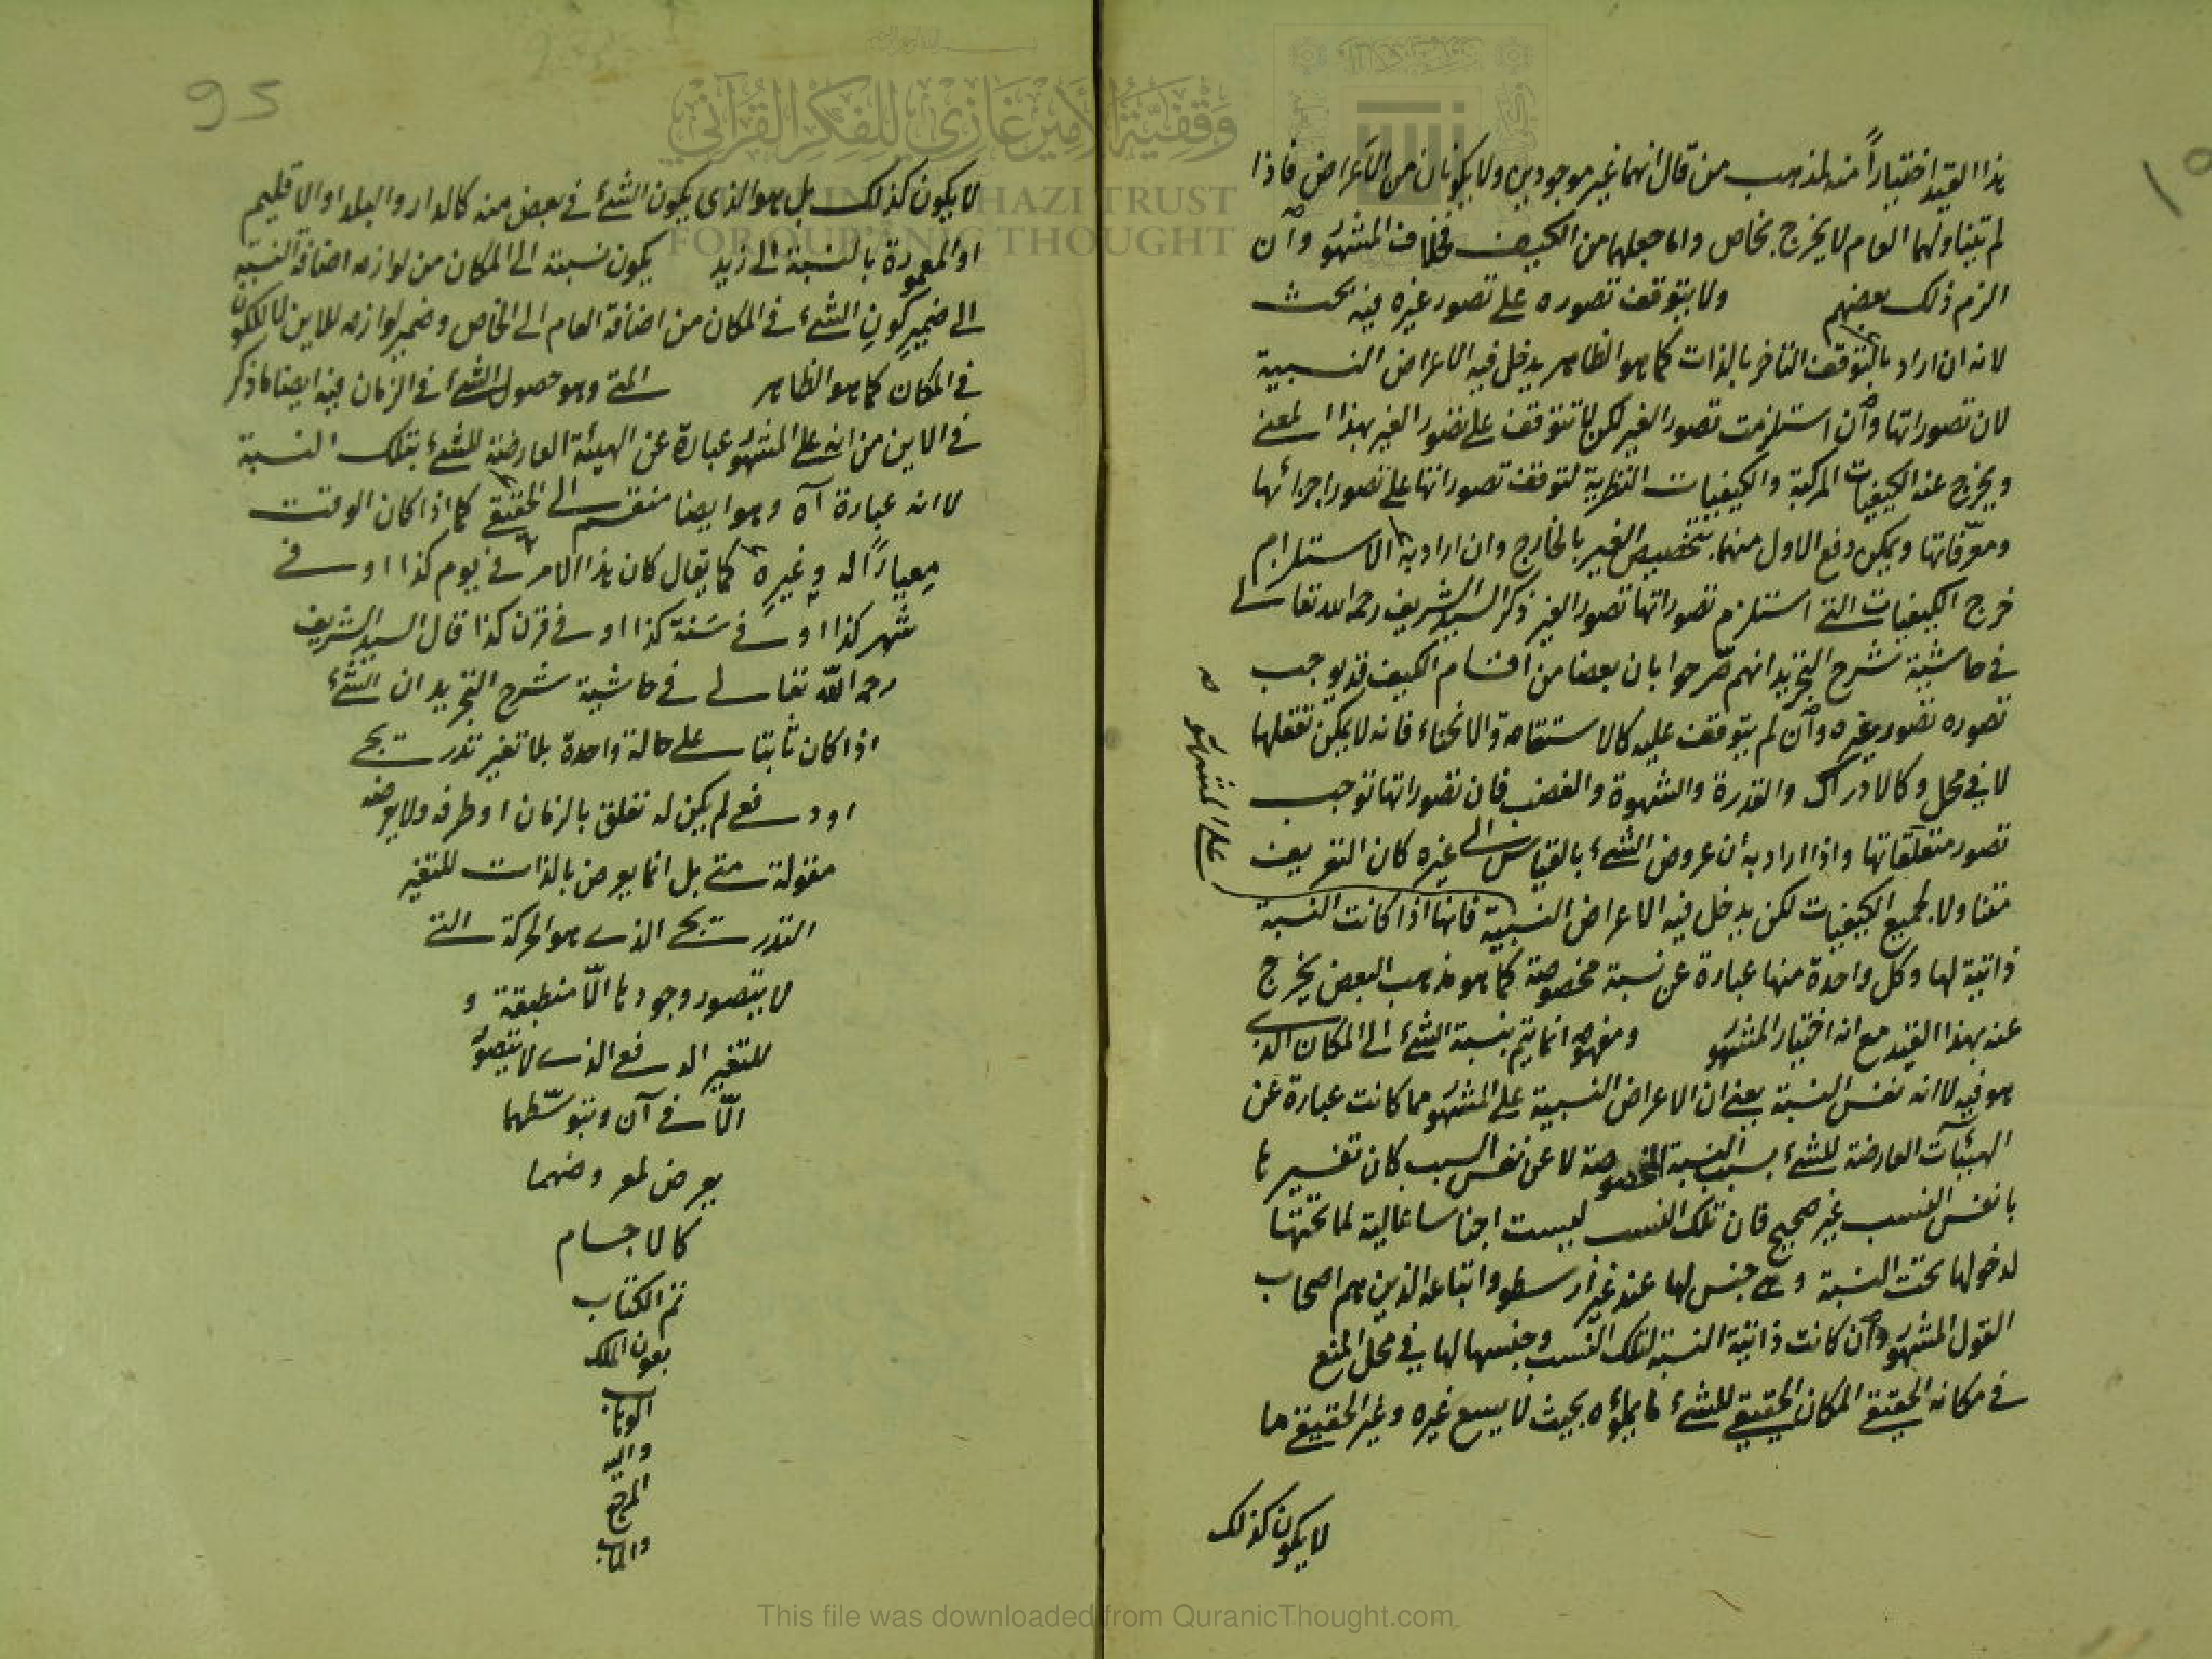 هذا القيد اختياراً منه لمذهب من قال انهما غير موجودين ولا يكونان من الاعراض فاذا
لم يتناولهما العام لا يخرج بخاص واما جعلهما من الكيف فخلاف المشهور وان
الزم ذلك بعضهم ولا يتوقف تصوره على تصور غيره فيه بحث
لانه ان اراد بالتوقف التاخر بالذات كما هو الظاهر يدخل فيه الاعراض النسبية
لان تصوراتها وان استلزمت تصور الغير لكن لا تتوقف على تصور الغير بهذا المعنى
ويخرج عنه الكيفيات المركبة والكيفيات النظرية لتوقف تصوراتها على تصور اجزائها
ومعرّفاتها ويمكن دفع الاول منهما بتخصيص الغير بالخارج وان اراد به الاستلزام
خرج الكيفيات التي استلزم تصوراتها تصور الغير ذكر السيد الشريف رحمه الله تعالى
في حاشية شرح التجريد انهم صرحوا بان بعضا من اقسام الكيف قد يوجب
تصوره تصور غيره وان لم يتوقف عليه كالاستقامة والانحناء فانه لا يمكن تعقلها
لا في محل وكالادراك والقدرة والشهوة والغضب فان تصوراتها توجب
تصور متعلقاتها واذا اراد به ان عروض الشيء بالقياس الى غيره كان التعريف
متناولا لجميع الكيفيات لكن يدخل فيه الاعراض النسبية فانها اذا كانت النسبة
ذاتية لها وكل واحدة منها عبارة عن نسبة مخصوصة كما هو مذهب البعض يخرج
عنه بهذا القيد مع انه اختيار المشهور ومفهومه انما يتم بنسبة الشيء الى المكان الذي
هو فيه لا انه نفس النسبة يعني ان الاعراض النسبية على المشهور مما كانت عبارة عن
الهيئات العارضة للشيء بسبب النسبة المخصوصة لا عن نفس النسب كان تفسيرها
بانفس النسب غير صحيح فان تلك النسب ليست اجناسا عالية لما تحتها
لدخولها تحت النسبة وهي جنس لها عند غير ارسطو واتباعه الذين هم اصحاب
القول المشهور وان كانت ذاتية النسبة لتلك النسب وجنسها لها في محل المنع
في مكانه الحقيقي المكان الحقيقي للشيء ما يملؤه بحيث لا يسع غيره وغير الحقيقي ما
لا يكون كذلك
على المشهور
لا يكون كذلك بل هو الذي يكون الشيء في بعض منه كالدار والبلد او الاقليم
او المعمورة بالنسبة الى زيد يكون نسبته الى المكان من لوازمه اضافة النسبة
الى ضمير كون الشيء في المكان من اضافة العام الى الخاص وضمير لوازمه للاين لا للكون
في المكان كما هو الظاهر المتى وهو حصول الشيء في الزمان فيه ايضا ما ذكر
في الاين من انه على المشهور عبارة عن الهيئة العارضة للشيء بتلك النسبة
لا انه عبارة آه وهو ايضا منقسم الى الحقيقي كما اذا كان الوقت
معياراً له وغيره كما يقال كان هذا الامر في يوم كذا او في
شهر كذا او في سنة كذا او في قرن كذا قال السيد الشريف
رحمه الله تعالى في حاشية شرح التجريد ان الشيء
اذا كان ثابتا على حالة واحدة بلا تغير تدريجي
او دفعي لم يكن له تعلق بالزمان او طرفه ولا يعرضه
مقولة متى بل انما يعرض بالذات للمتغير
التدريجي الذي هو الحركة التي
لا يتصور وجودها الّا منطبقة و
للمتغير الدفعي الذي لا يتصور
الّا في آن وبتوسّطهما
يعرض لمعروضهما
كالاجسام
تم الكتاب
بعون الملك
الوهاب
واليه
المرجع
والمآب
95
وقفية الأمير غازي للفكر القرآني
THE PRINCE GHAZI TRUST
FOR QUR'ANIC THOUGHT
This file was downloaded from QuranicThought.com